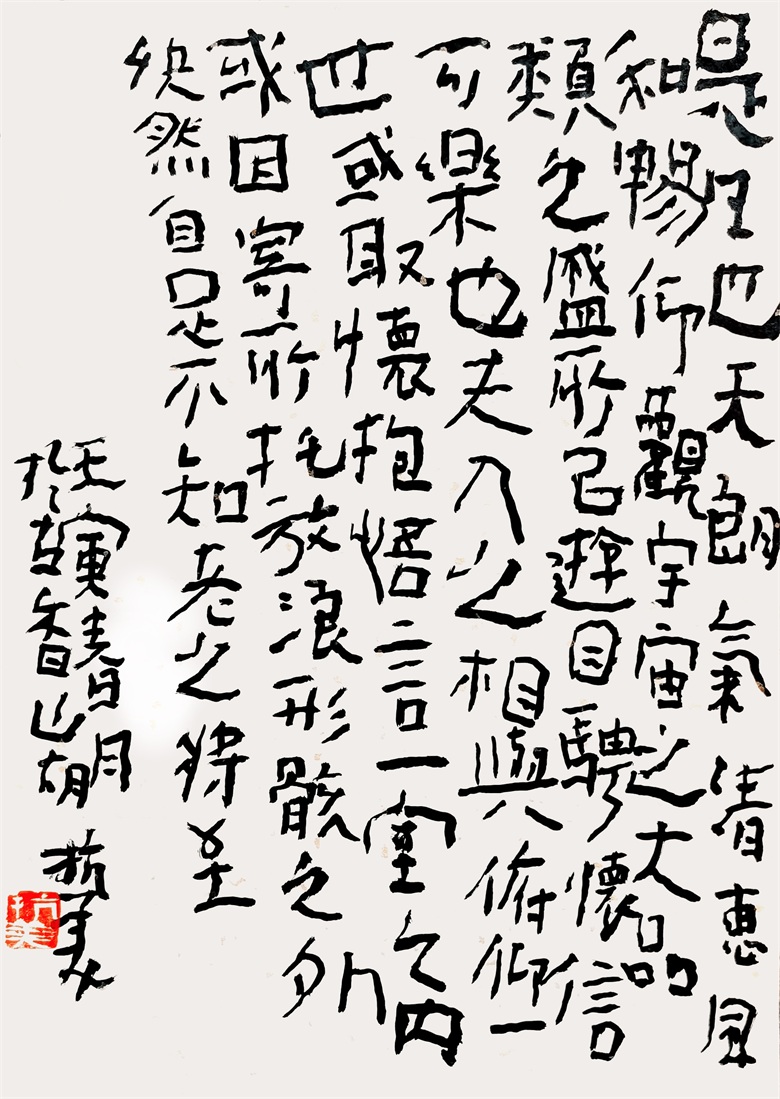 是日也天朗氣清惠風
和暢仰觀宇宙之大品
類之盛所已遊目騁懷信
可樂也夫人之相與俯仰一
世或取懷抱悟言一室之內
或因寄所托放浪形骸之外
快然自足不知老之將至
壬寅春月
於香山胡抗美
抗美